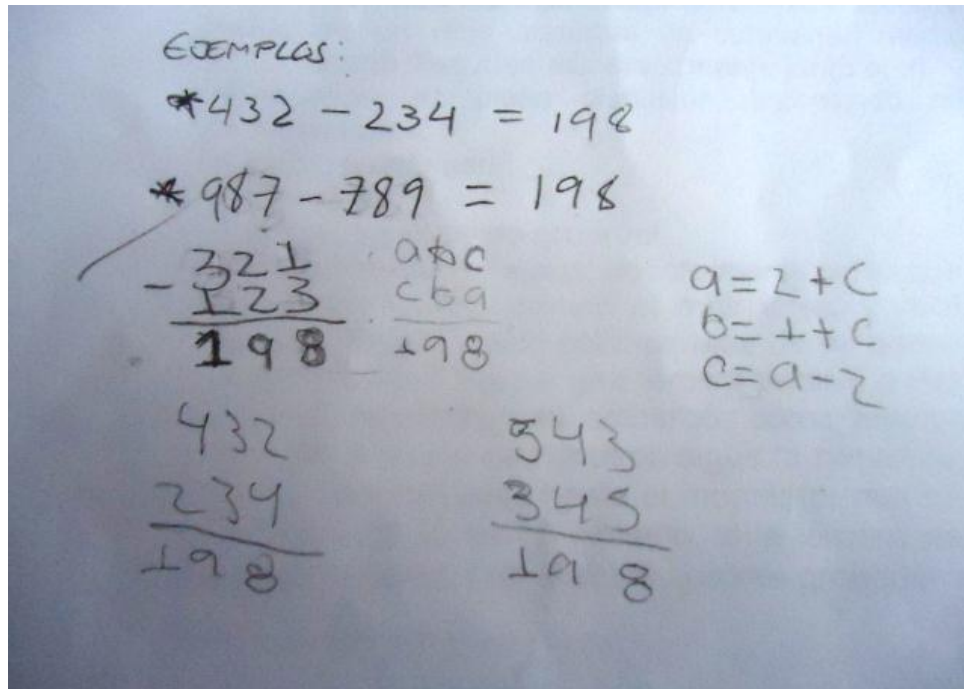 EJEMPLOS:
*432 - 234 = 198
*987 - 789 = 198
321
- 123
198
abc
cba
198
a = 2 + c
b = 1 + c
c = a - 2
432
234
198
543
345
198